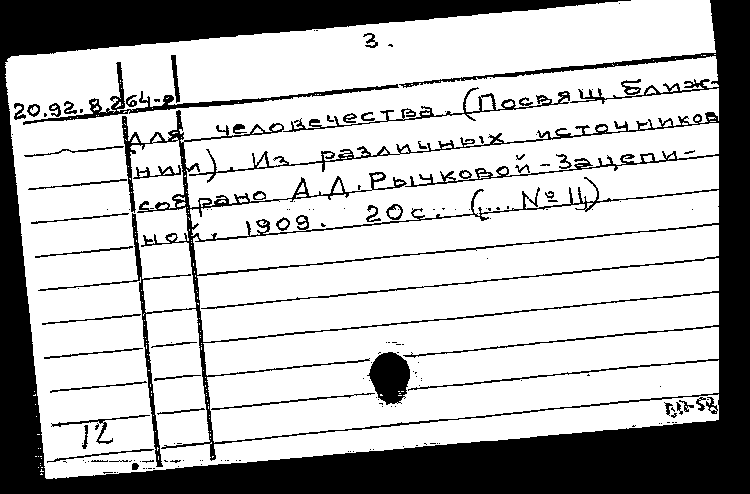 3.
20.92.8.264-р
для человечества. (Посвящ. ближ-
ним). Из различных источников
собрано А.Д. Рычковой-Зацепи-
ной. 1909. 20 с. (... № 11).
12